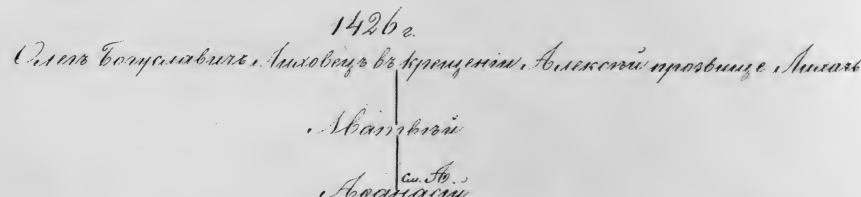 1426 г.
Олегъ Богуславичъ Лиховецъ въ крещеніи Алексѣй прозвище Лихачъ
Матвѣй
См. А.
Аѳанасій